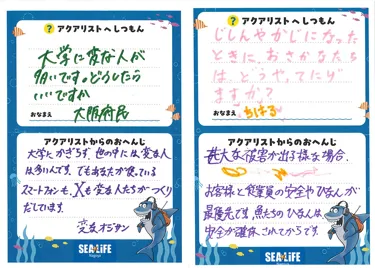 アクアリストへしつもん
大学に変な人が
多いです。どうしたら
いいですか
おなまえ 大阪府民
アクアリストからのおへんじ
大学にかぎらず、世の中には変な人
は多いんです。でもあなたが使っている
スマートフォンも、Xも変な人たちがつくり
だしています。
変なオジサン
SEA LIFE
Nagoya
アクアリストへしつもん
じしんやかじになった
ときに、おさかなたち
は、どうやってにげ
ますか?
おなまえ ちはる
アクアリストからのおへんじ
甚大な被害が出る様な場合、
お客様と従業員の安全やひなんが
最優先です。魚たちのひなんは
安全が確保されてからです。
SEA LIFE
Nagoya